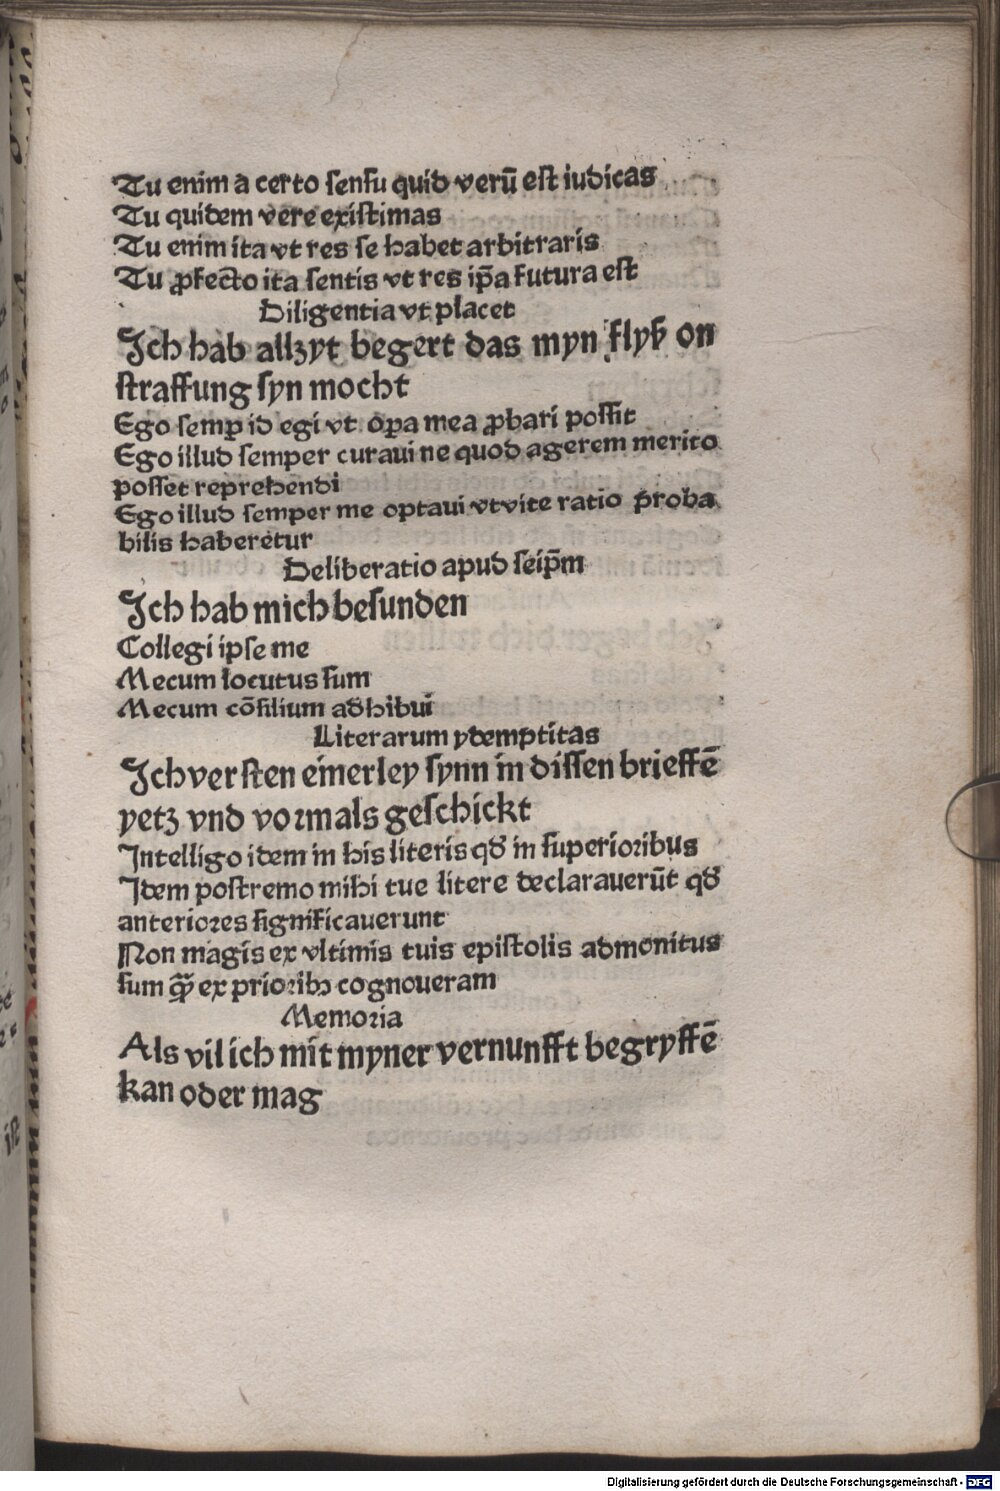 Tu enim a certo ſenſu quid verū eſt iudicas
Tu quidem vere exiſtimas
Tu enim ita vt res ſe habet arbitraris
Tu ꝓfecto ita ſentis vt res ip̄a futura eſt
Diligentia vt placet
Ich hab allzyt begert das myn flyß on
ſtraffung ſyn mocht
Ego ſemꝑ id egi vt oꝑa mea ꝓbari poſſit
Ego illud ſemper curaui ne quod agerem merito
poſſet reprehendi
Ego illud ſemper me optaui vt vite ratio proba
bilis haberetur
Deliberatio apud ſeip̄m
Ich hab mich beſunden
Collegi ipſe me
Mecum locutus ſum
Mecum cōſilium adhibui
Literarum ydemptitas
Ich verſten einerley ſynn in diſſen brieffē
yetz vnd voꝛmals geſchickt
Intelligo idem in his literis qđ in ſuperioꝛibus
Idem poſtremo mihi tue litere declarauerūt qđ
anterioꝛes ſignificauerunt
Non magis ex vltimis tuis epiſtolis admonitus
ſum qᷓ ex prioꝛibꝫ cognoueram
Memoꝛia
Als vil ich mit myner vernunfft begryffē
kan oder mag
Digitalisierung gefördert durch die Deutsche Forschungsgemeinschaft - DFG